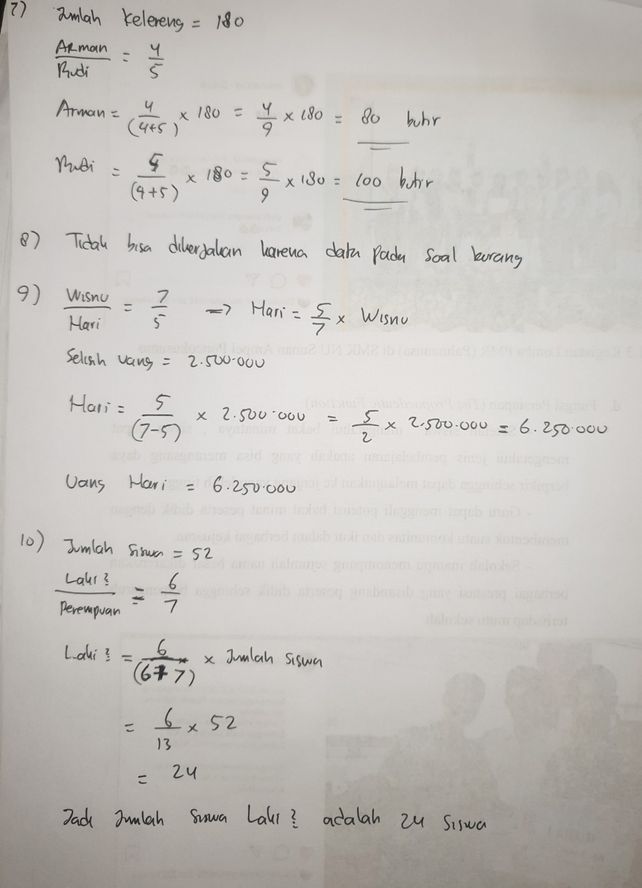 7) Jumlah Kelereng = 180
Arman/Budi = 4/5
Arman = 4/(4+5) × 180 = 4/9 × 180 = 80 butir
Budi = 5/(4+5) × 180 = 5/9 × 180 = 100 butir
8) Tidak bisa dikerjakan karena data pada soal kurang
9) Wisnu/Hari = 7/5 => Hari = 5/7 × Wisnu
Selisih uang = 2.500.000
Hari = 5/(7-5) × 2.500.000 = 5/2 × 2.500.000 = 6.250.000
Uang Hari = 6.250.000
10) Jumlah siswa = 52
Laki2/Perempuan = 6/7
Laki2 = 6/(6+7) × Jumlah siswa
= 6/13 × 52
= 24
Jadi Jumlah siswa Laki2 adalah 24 siswa